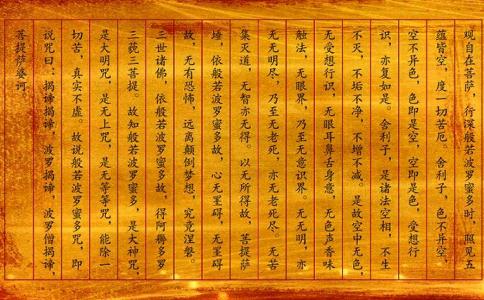 观自在菩萨，行深般若波罗蜜多时，照见五
蕴皆空，度一切苦厄。舍利子，色不异空，
空不异色，色即是空，空即是色，受想行
识，亦复如是。舍利子，是诸法空相，不生
不灭，不垢不净，不增不减。是故空中无色，
无受想行识，无眼耳鼻舌身意，无色声香味
触法，无眼界，乃至无意识界。无无明，亦
无无明尽，乃至无老死，亦无老死尽。无苦
集灭道，无智亦无得。以无所得故，菩提萨
埵，依般若波罗蜜多故，心无罣碍，无罣碍
故，无有恐怖，远离颠倒梦想，究竟涅磐。
三世诸佛，依般若波罗蜜多故，得阿耨多罗
三藐三菩提。故知般若波罗蜜多，是大神咒，
是大明咒，是无上咒，是无等等咒，能除一
切苦，真实不虚。故说般若波罗蜜多咒，即
说咒曰：揭谛揭谛，波罗揭谛，波罗僧揭谛，
菩提萨婆诃。